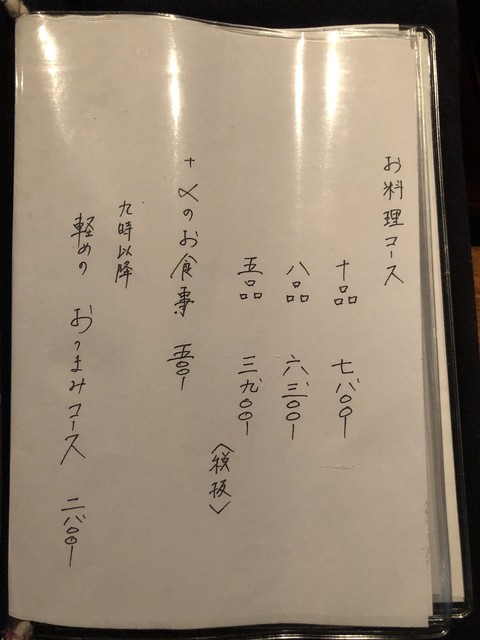 お料理コース
十品 七八〇〇ー
八品 六三〇〇ー
五品 三九〇〇ー
(税抜)
+〆のお食事 五〇〇ー
九時以降
軽めの おつまみコース 二八〇〇ー